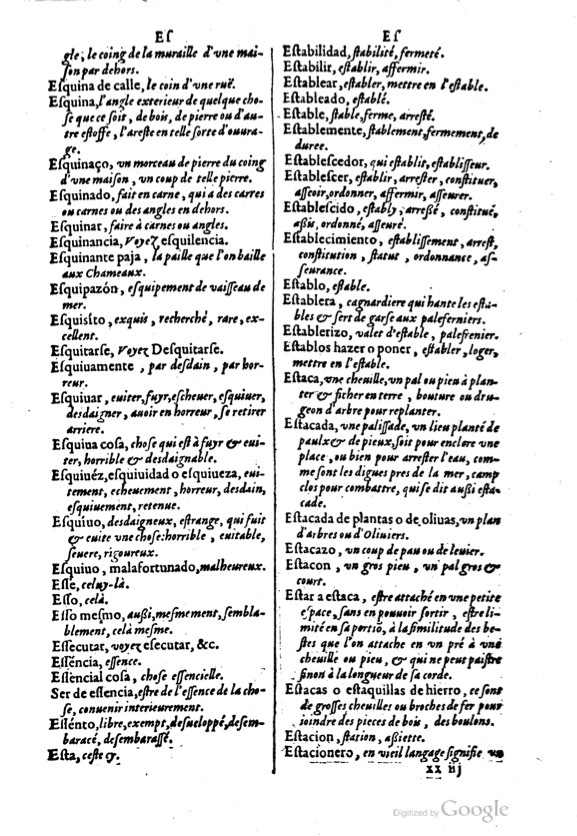 Eſ
gle, le coing de la muraille d'vne mai-
ſon par dehors.
Eſquina de calle, le coin d'vne ruë.
Eſquina, l'angle exterieur de quelque cho-
ſe que ce ſoit, de bois, de pierre ou d'au-
tre eſtoffe, l'areſte en telle ſorte d'ouura-
ge.
Eſquinaço, vn morceau de pierre du coing
d'vne maiſon, vn coup de telle pierre.
Eſquinado, fait en carne, qui a des carres
ou carnes ou des angles en dehors.
Eſquinar, faire à carnes ou angles.
Eſquinancia, Voyez eſquilencia.
Eſquinante paja, la paille que l'on baille
aux Chameaux.
Eſquipazón, eſquipement de vaiſſeau de
mer.
Eſquiſito, exquis, recherché, rare, ex-
cellent.
Eſquitarſe, Voyez Deſquitarſe.
Eſquiuamente, par deſdain, par hor-
reur.
Eſquiuar, euiter, fuyr, eſcheuer, eſquiuer,
deſdaigner, auoir en horreur, ſe retirer
arriere.
Eſquiua coſa, choſe qui eſt à fuyr & eui-
ter, horrible & deſdaignable.
Eſquiuéz, eſquiuidad o eſquiueza, eui-
tement, echeuement, horreur, deſdain,
eſquiuement, retenue.
Eſquiuo, deſdaigneux, eſtrange, qui fuit
& euite vne choſe: horrible, euitable,
ſeuere, rigoureux.
Eſquiuo, malafortunado, malheureux.
Eſſe, celuy-là.
Eſſo, celà.
Eſſo meſmo, außi, meſmement, ſembla-
blement, celà meſme.
Eſſecutar, voyez eſecutar, &c.
Eſſéncia, eſſence.
Eſſéncial coſa, choſe eſſencielle.
Ser de eſſencia, eſtre de l'eſſence de la cho-
ſe, conuenir interieurement.
Eſſénto, libre, exempt, deſueloppé, deſem-
baracé, deſembaraſſé.
Eſta, ceſte cy.
Eſ
Eſtabilidad, ſtabilité, fermeté.
Eſtabilir, eſtablir, affermir.
Eſtablear, eſtabler, mettre en l'eſtable.
Eſtableado, eſtablé.
Eſtable, ſtable, ferme, arreſté.
Eſtablemente, ſtablement, fermement, de
duree.
Eſtableſcedor, qui eſtablit, eſtabliſſeur.
Eſtableſcer, eſtablir, arreſter, conſtituer,
aſſeoir, ordonner, affermir, aſſeurer.
Eſtableſcido, eſtably, arreſté, conſtitué,
aßis, ordonné, aſſeuré.
Eſtablecimiento, eſtabliſſement, arreſt,
conſtitution, ſtatut, ordonnance, aſ-
ſeurance.
Eſtablo, eſtable.
Eſtablera, cagnardiere qui hante les eſta-
bles & ſert de garſe aux paleferniers.
Eſtablerizo, valet d'eſtable, palefrenier.
Eſtablos hazer o poner, eſtabler, loger,
mettre en l'eſtable.
Eſtaca, vne cheuille, vn pal ou pieu à plan-
ter & ficher en terre, bouture ou dru-
geon d'arbre pour replanter.
Eſtacada, vne paliſſade, vn lieu planté de
paulx & de pieux, ſoit pour enclore vne
place, ou bien pour arreſter l'eau, com-
me ſont les digues pres de la mer, camp
clos pour combattre, qui ſe dit außi eſta-
cade.
Eſtacada de plantas o de oliuas, vn plan
d'arbres ou d'Oliuiers.
Eſtacazo, vn coup de pau ou de leuier.
Eſtacon, vn gros pieu, vn pal gros &
court.
Eſtar a eſtaca, eſtre attaché en vne petite
eſpace, ſans en pouuoir ſortir, eſtre li-
mité en ſa portiō, à la ſimilitude des be-
ſtes que l'on attache en vn pré à vne
cheuille ou pieu, & qui ne peut paiſtre
ſinon à la longueur de ſa corde.
Eſtacas o eſtaquillas de hierro, ce ſont
de groſſes cheuilles ou broches de fer pour
ioindre des pieces de bois, des boulons.
Eſtacion, ſtation, aßiette.
Eſtacionero, en vieil langage ſignifie vn
xx iij
Digitized by Google